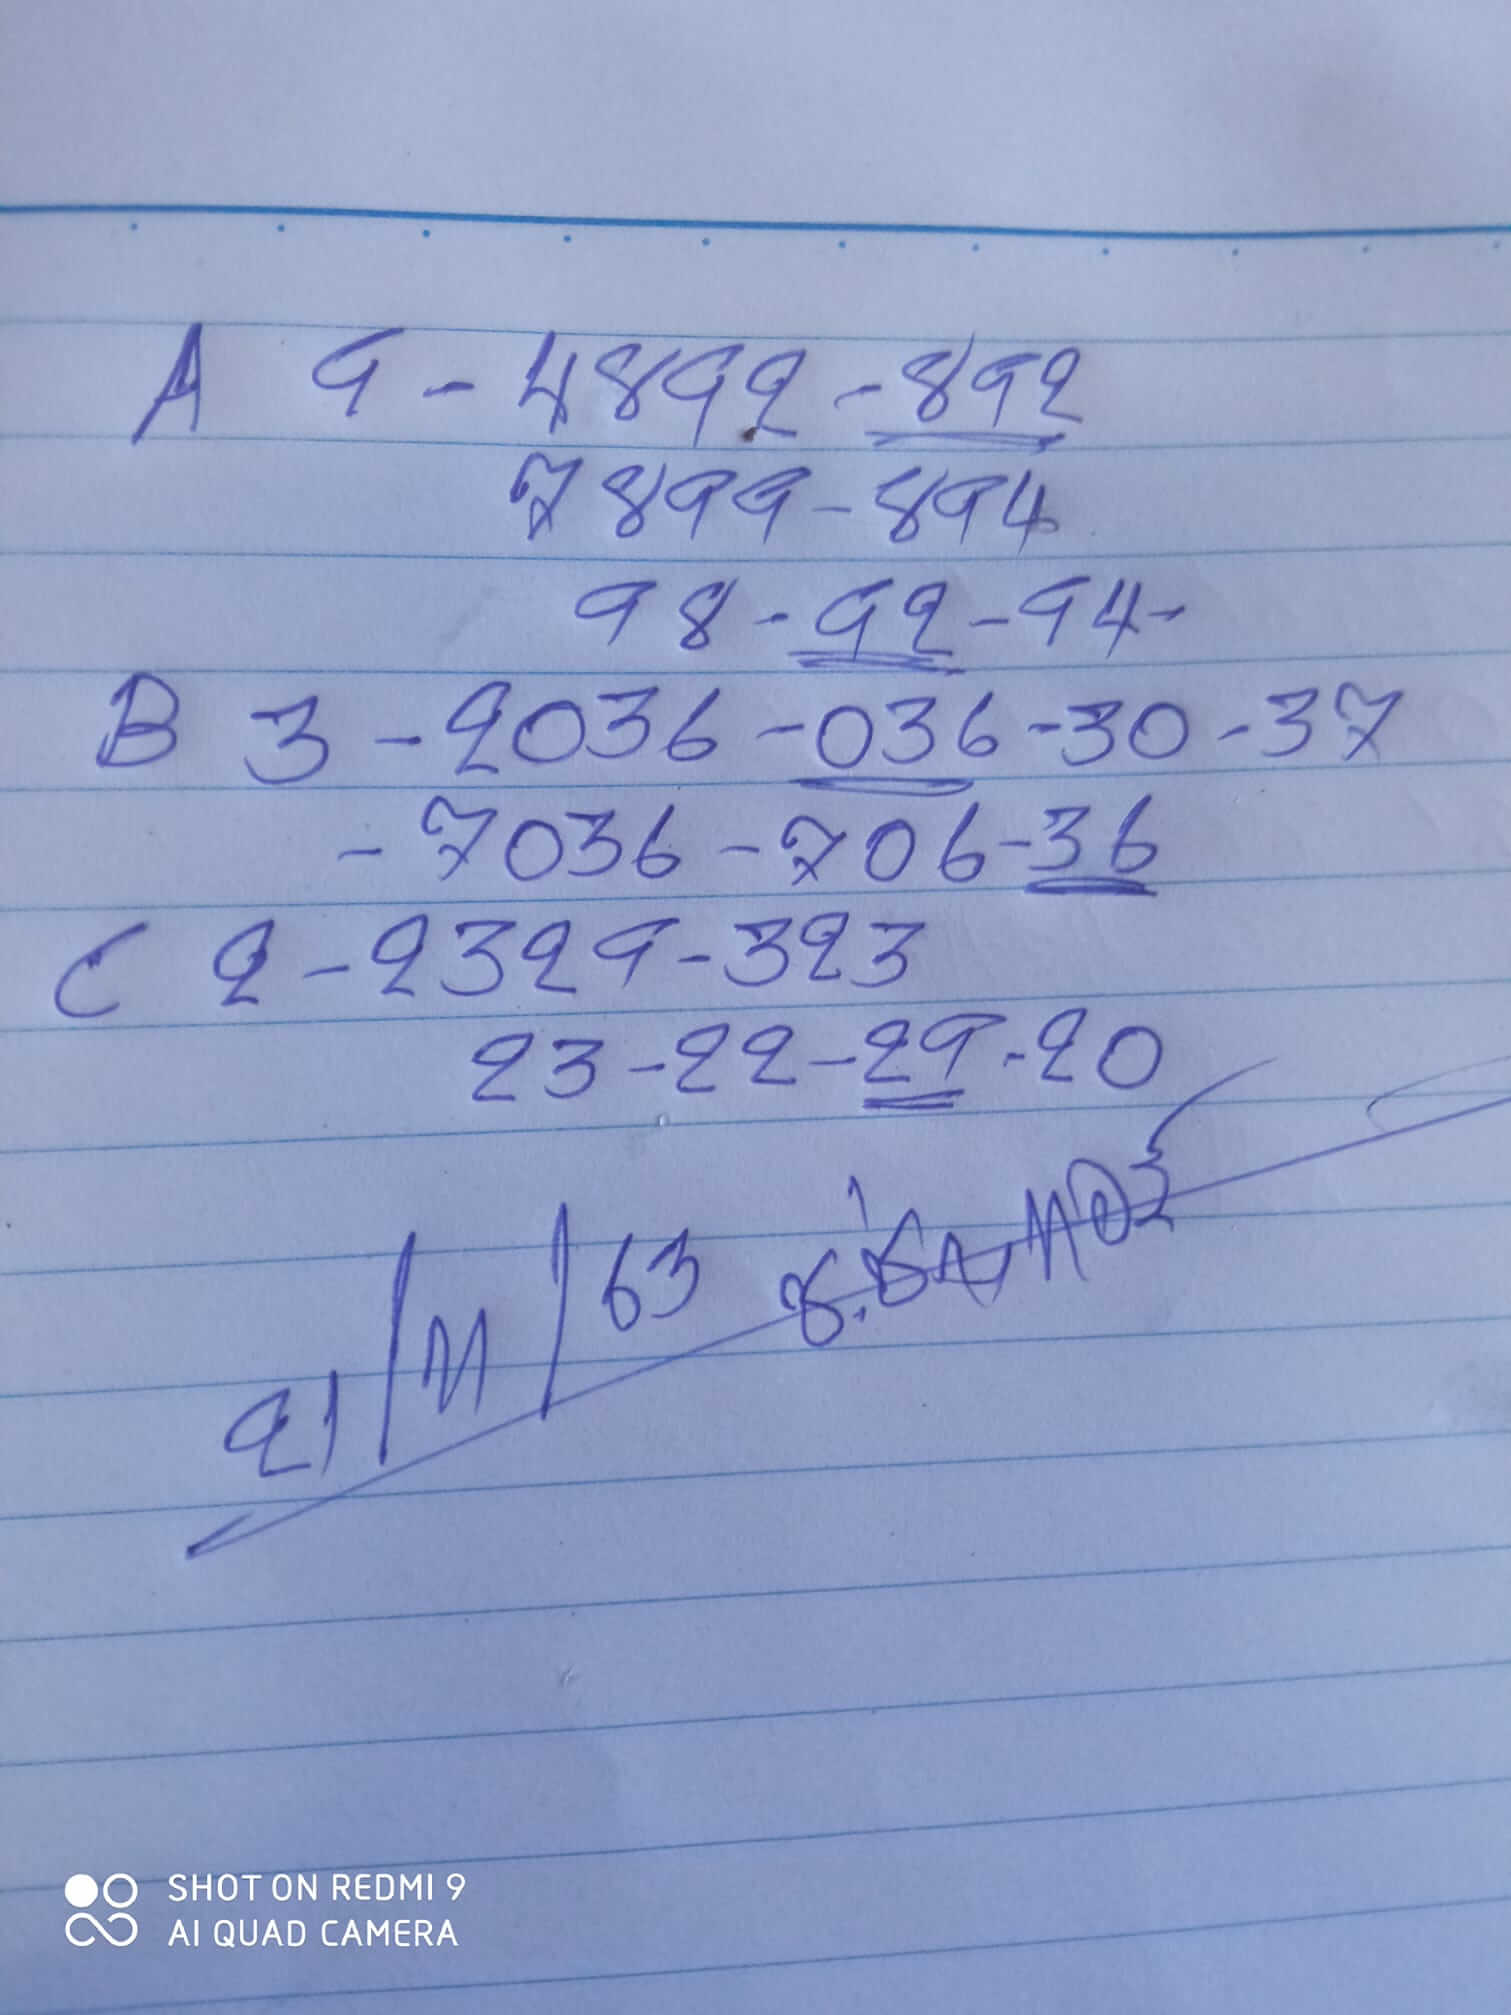 A 9 - 4892 - 892
7899 - 894
98 - 92 - 94 -
B 3 - 2036 - 036 - 30 - 37
- 7036 - 706 - 36
C 2 - 2329 - 323
23 - 22 - 29 - 20
21/11/63
SHOT ON REDMI 9
AI QUAD CAMERA